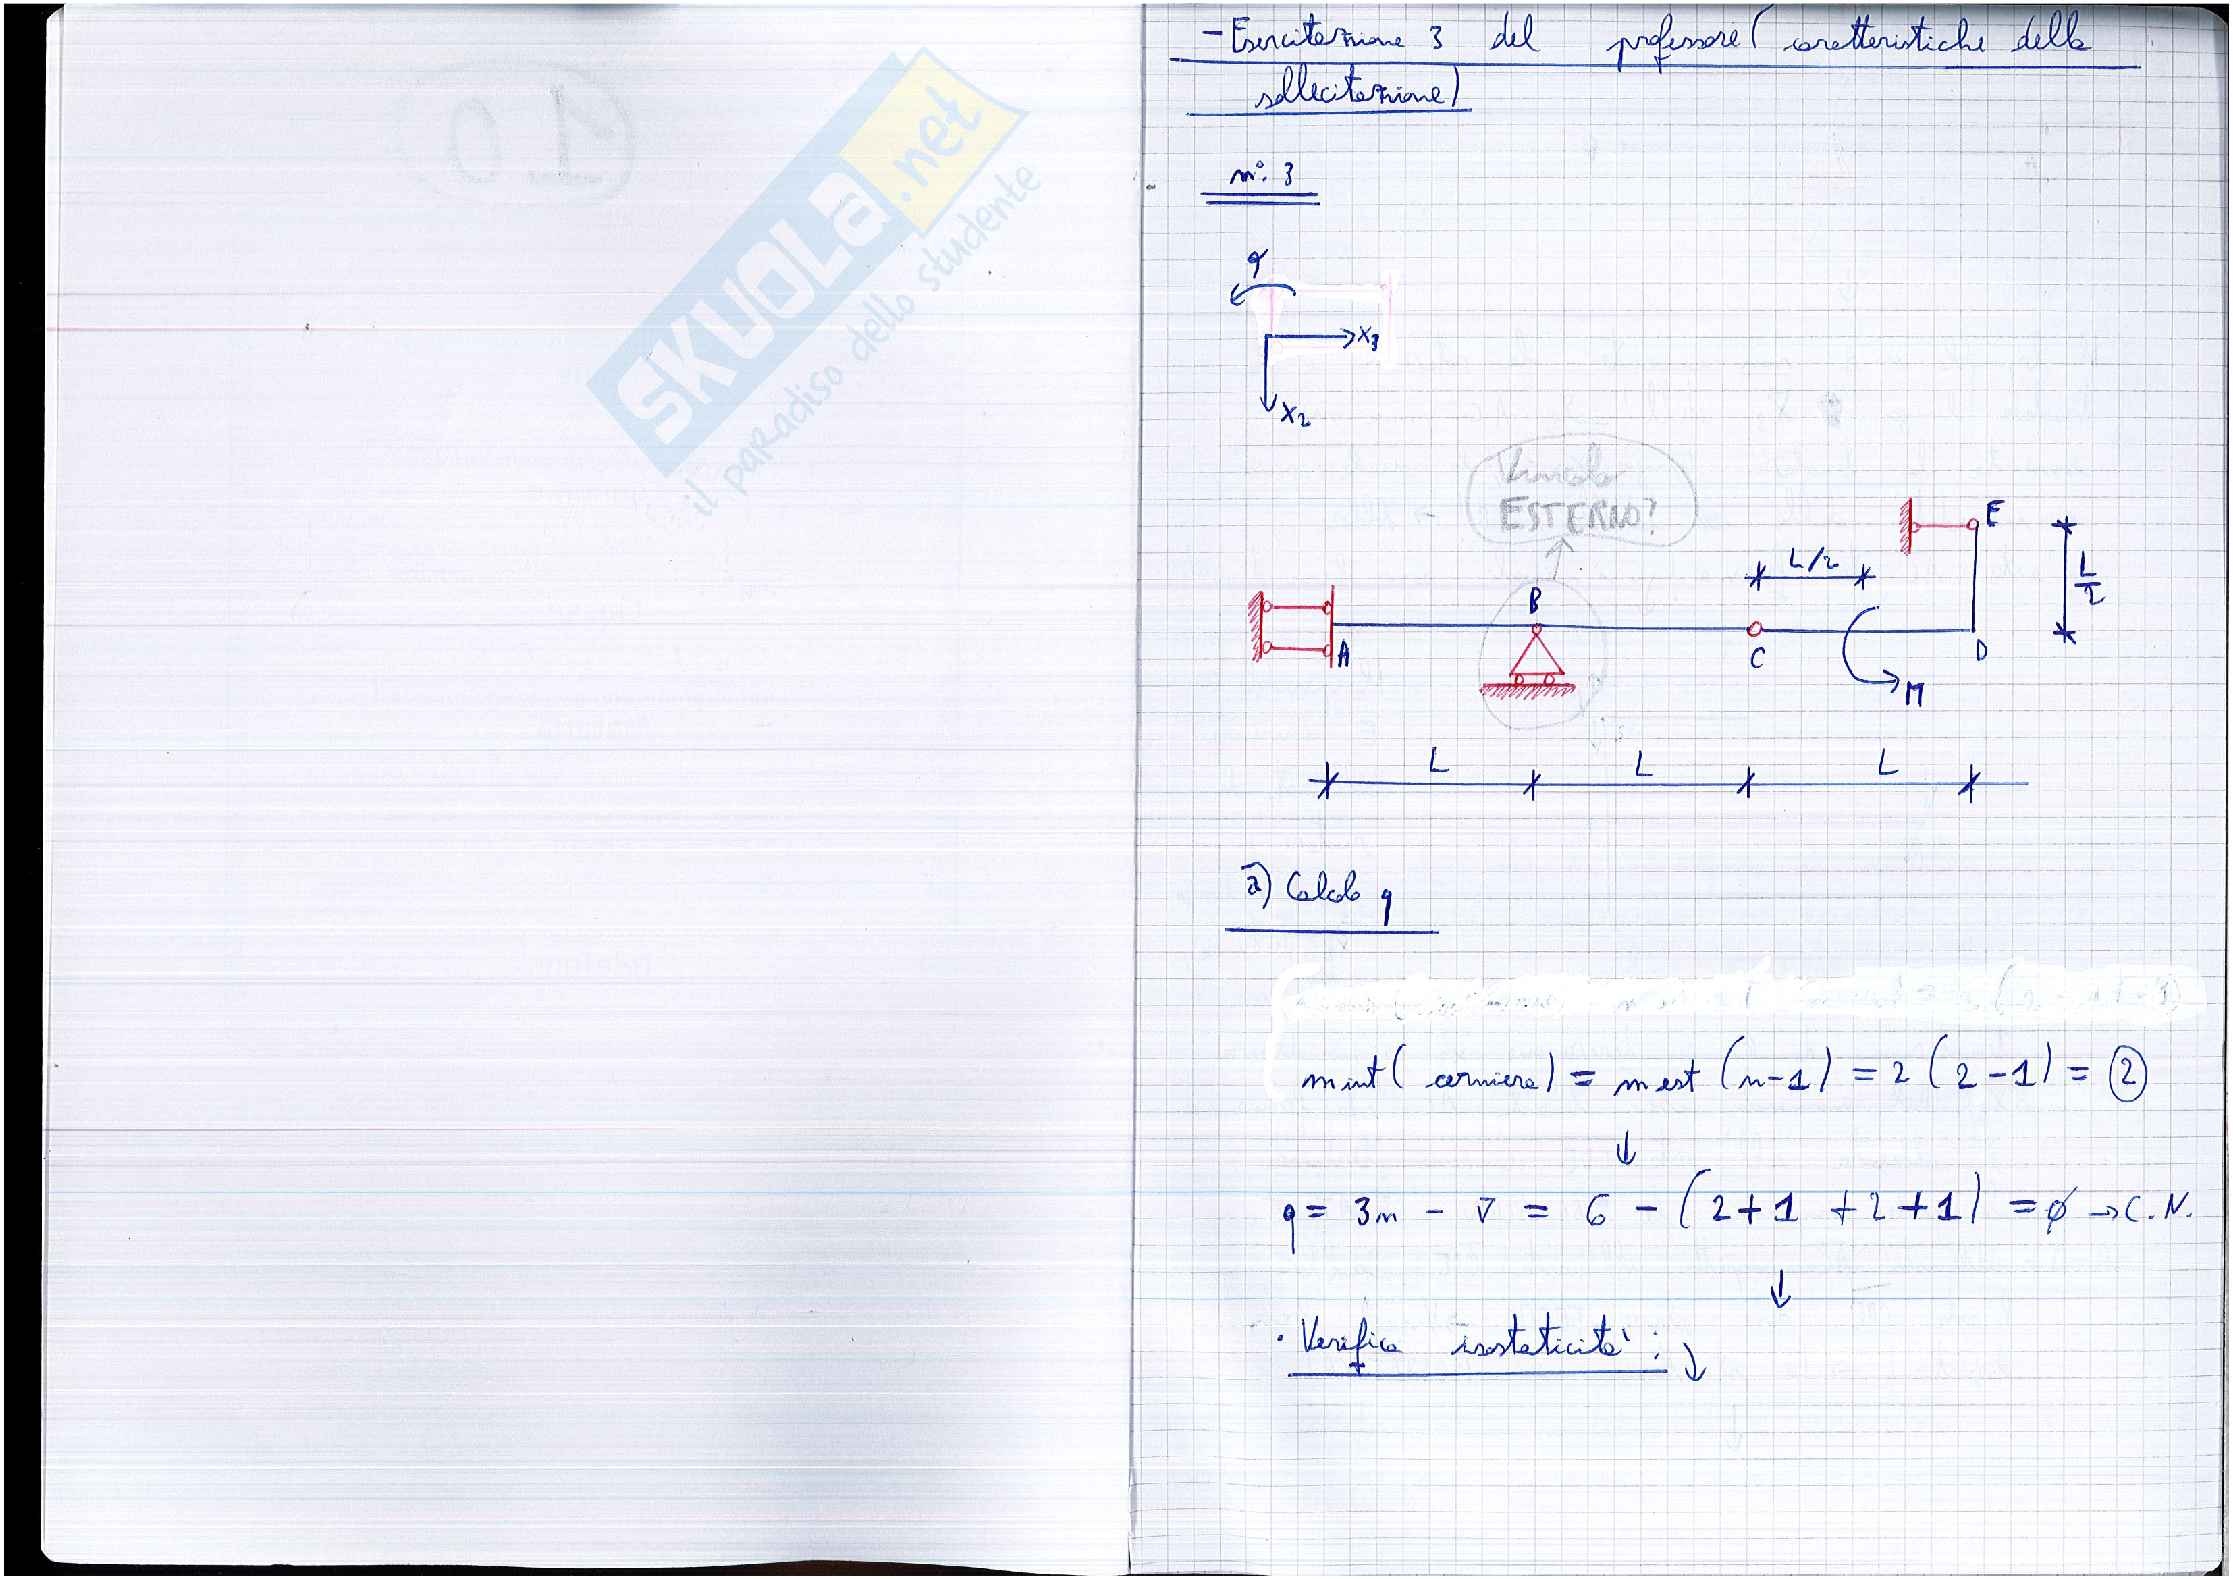 SKUOLA.net
il paradiso dello studente
- Esercitazione 3 del professore (caratteristiche della
sollecitazione)
n° 3
φ
x3
x2
Vincolo
ESTERNO?
E
L/2
L
2
B
A
C
D
M
L
L
L
a) Calcolo q
mint (cerniera) = mest (n-1) = 2 (2-1) = 2
↓
q = 3n - v = 6 - (2+1 +2+1) = ø → C.N.
↓
• Verifica isostaticità: ↓